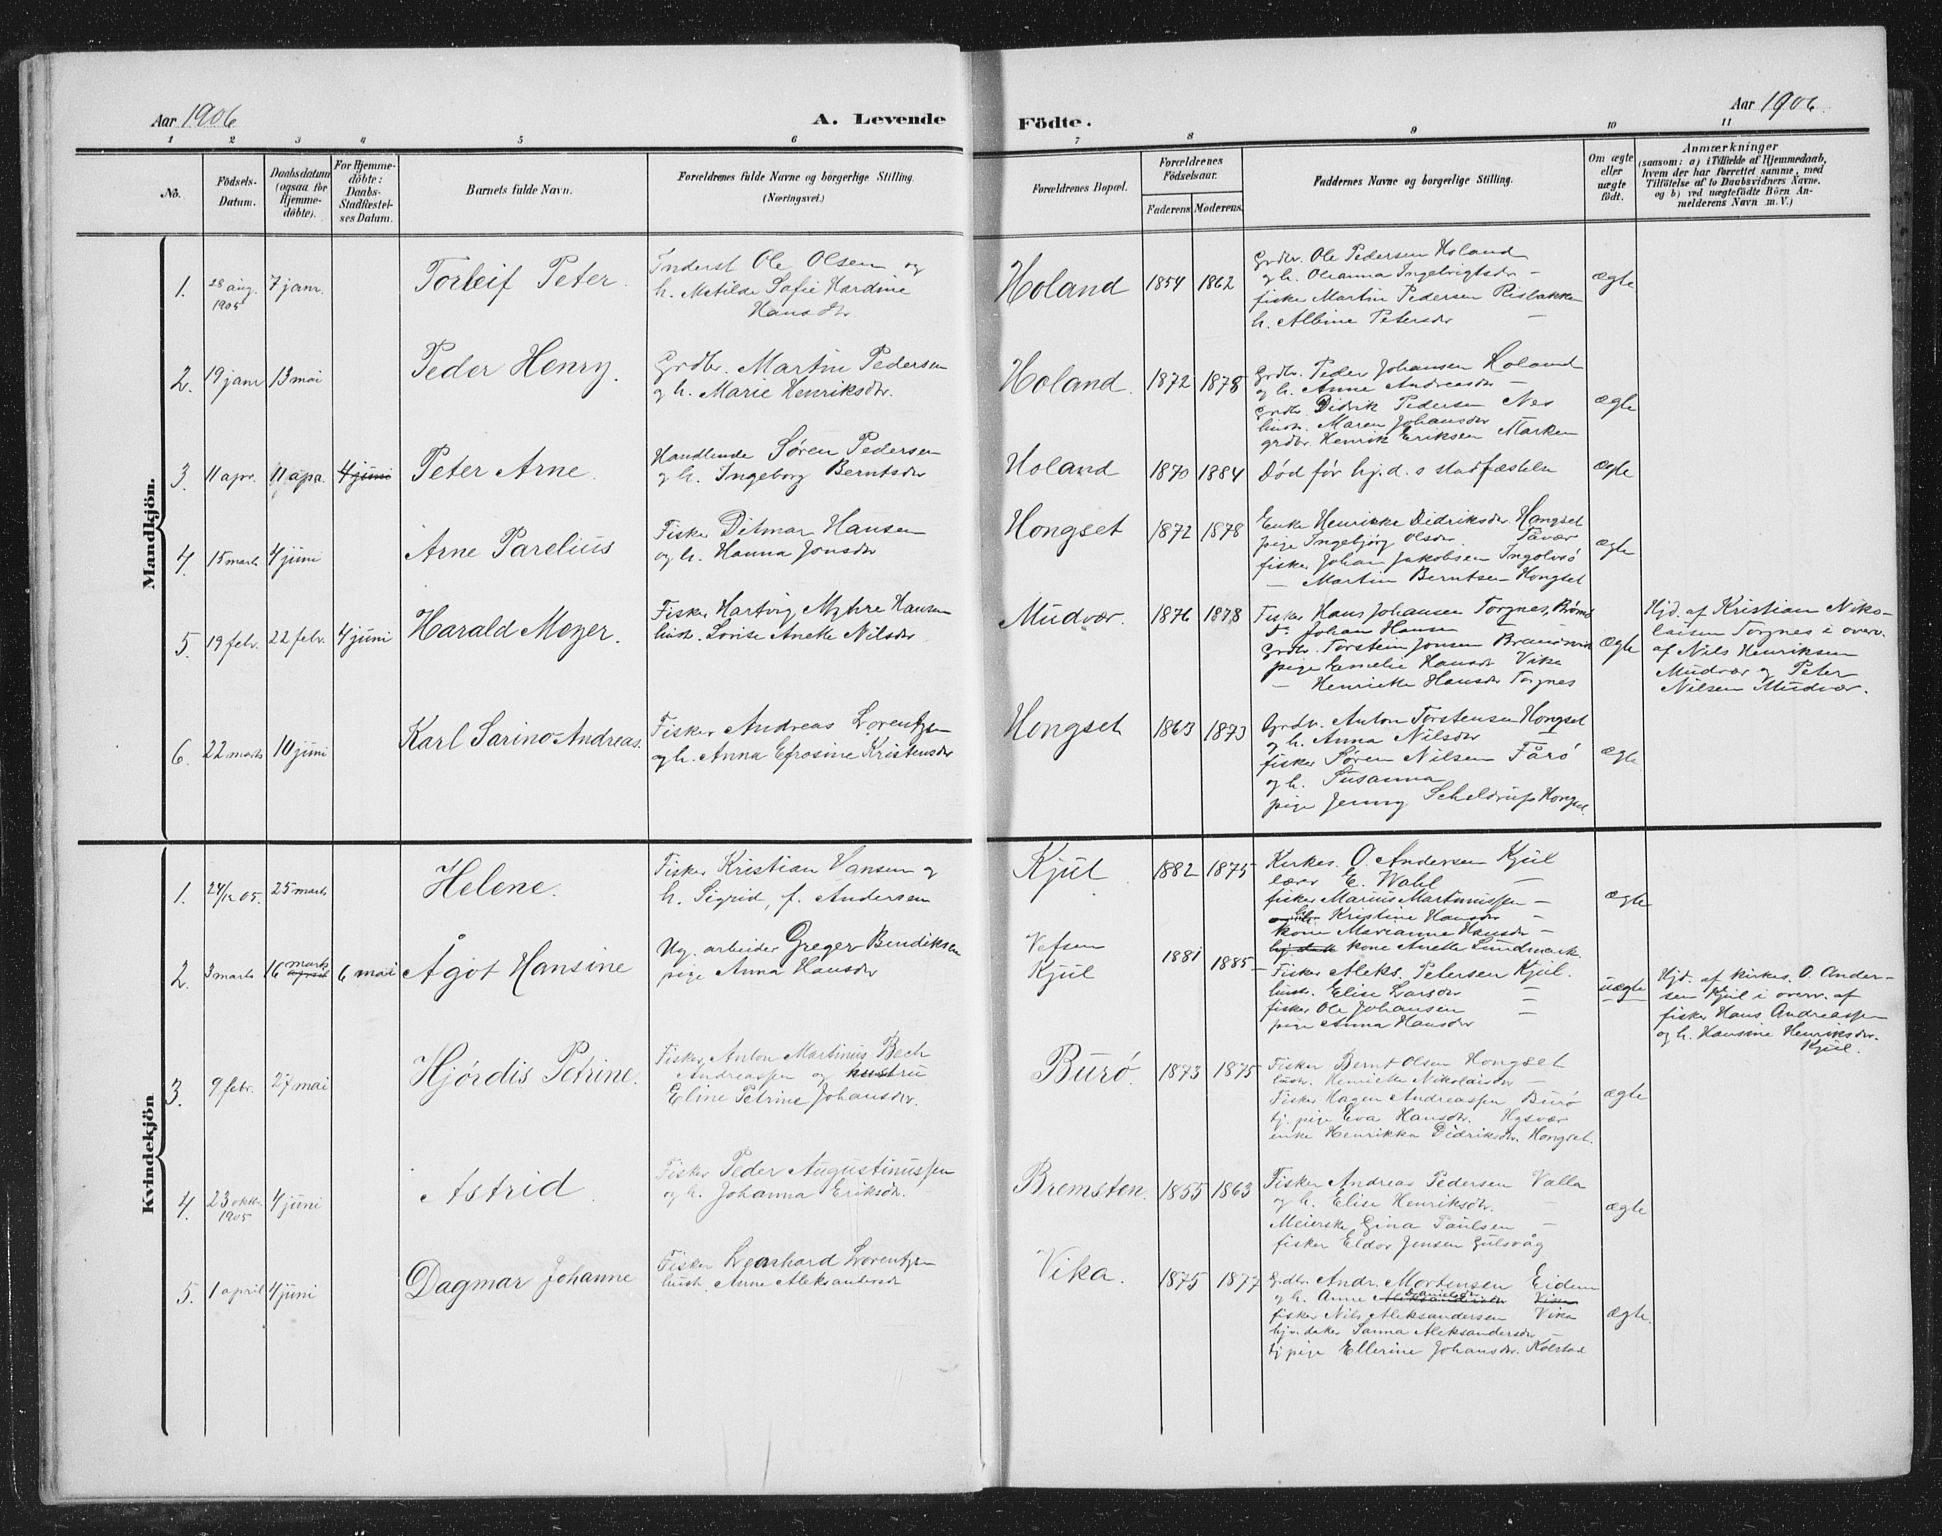 Aar 1906
A. Levende
Födte.
Aar 1906.
1 2 3 4 5 6 7 8 9 10 11
Nö.
Födsels-Datum.
Daabsdatum (ogsaa for Hjemmedöbte).
For Hjemmedöbte: Daabs-Stadfæstelses Datum.
Barnets fulde Navn.
Forældrenes fulde Navne og borgerlige Stilling.
(Næringsvei.)
Forældrenes Bopæl.
Forældrenes Födselsaar.
Faderens. Moderens.
Faddernes Navne og borgerlige Stilling.
Om ægte eller uægte födt.
Anmærkninger
(saasom: a) i Tilfælde af Hjemmedaab,
hvem der har forrettet samme, med
Tilföielse af to Daabsvidners Navne,
og b) ved uægtefödte Börn Anmelderens Navn m. V.)
Mandkjön.
1. 28 aug. 1905 7 janr. Torleif Peter.
Inderst Ole Olsen og
h. Matilde Sofie Hardine
Hansdtr.
Holand 1854 1862
Grdbr. Ole Pedersen Holand
og h. Oleanna Ingebrigtsdtr —
fisker Martin Pedersen Risbakken
h. Albine Petersdtr —
ægte
2. 19 janr 13 mai Peder Henry.
Grdbr. Martin Pedersen
og h. Marie Henriksdtr.
Holand. 1872 1878
Grdbr. Peder Johansen Holand
og h. Anne Andreasdtr —
Grdbr. Didrik Pedersen Nes
hustr. Maren Johansdtr
grdbr. Henrik Eriksen Marken
ægte
3. 11 apr. 11 apr. 4 juni Peter Arne.
Handlende Søren Pedersen
og h. Ingeborg Berntsdtr
Holand 1870 1884
Død før hj.d.s stadfæstelse
ægte
4. 15 marts 4 juni Arne Parelius
Fisker Ditmar Hansen
og h. Hanna Jonsdtr
Hongset 1872 1878
Enke Henrikke Didriksdtr. Hongset
pige Ingebjørg Olsdtr. Tåvær
fisker Johan Jakobsen Ingolvsö
— Martin Berntsen Hongset
ægte
5. 19 febr. 22 febr. 4 juni Harald Meyer.
Fisker Hartvig Myhre Hansen
hustr. Lovise Anette Nilsdtr
Mudvær. 1876 1878
Fisker Hans Johansen Torgnes, Brøms
Do Johan Hansen
Grdbr. Torstein Jonsen
pige Emelie Hansdtr Vika
— Henriette Hansdtr Torgnes
ægte
Hjd. af Kristian Nikolaisen Torgnes i overv.
af Nils Henriksen
Mudvær og Peter
Nilsen Mudvær.
6. 22 marts 10 juni Karl Sarino Andreas.
Fisker Andreas Lorentzen
og h. Anna Efrosine Kristensdtr
Hongset 1863 1873
Grdbr. Anton Torstensen Hongset
og h. Anna Nilsdtr
fisker Søren Nilsen Fårö
og h. Susanna
pige Jenny Scheldrup Hongset.
ægte
Kvindekjön
1. 24/12 05. 25 marts Helene.
Fisker Kristian Hansen og
h. Sigrid, f. Andersen
Kjül. 1882 1875
Kirkes. O. Andersen Kjül
lærer E. Wahl —
fisker Marius Martinussen —
Kristine Hansdtr —
kone Marianne Hansdtr —
kone Anette Lundmark
ægte
2. 3 marts 16 marts april 6 mai Ågot Hansine
Ug. arbeider Greger Bendiksen
pige Anna Hansdtr
Vefsen
Kjül
1881 1885
Fisker Aleks. Petersen Kjül.
hustr. Elise Larsdtr —
fisker Ole Johansen —
pige Anna Hansdtr —
uægte
Hjd. af kirkes. O. Andersen Kjül i overv. af
fisker Hans Andreassen
og h. Hansine Henriksdtr.
Kjül.
3. 9 febr. 27 mai Hjørdis Petrine.
Fisker Anton Martinus Bech
Andreassen og hustru
Eline Petrine Johansdtr.
Burö. 1873 1875
Fisker Bernt Olsen Hongset
hustr. Henriette Nikolaisdtr —
Fisker Hagen Andreassen Burö
tj. pige Eva Hansdtr. Hysvær
enke Henrikka Didriksdtr. Hongset.
ægte
4. 23 oktbr. 1905 4 juni Astrid.
Fisker Peder Augustinussen
og h. Johanna Eriksdtr.
Bremsten. 1855 1863
Fisker Andreas Pedersen Valla
og h. Elise Henriksdtr. —
Meierske Gina Paulsen —
fisker Eldor Jensen Gulsvåg
ægte
5. 1 april 4 juni Dagmar Johanne
Fisker Leonhard Lorentzen
hustr. Anne Aleksandersdtr
Vika. 1875 1877
Grdbr. Andr. Mortensen Eidem
og h. Anne Aleksandersdtr Danielsdtr Vika
fisker Nils Aleksandersen Vika
Sanna Aleksandersdtr —
tj. pige Ellerine Johansdtr. Kolstad
ægte.